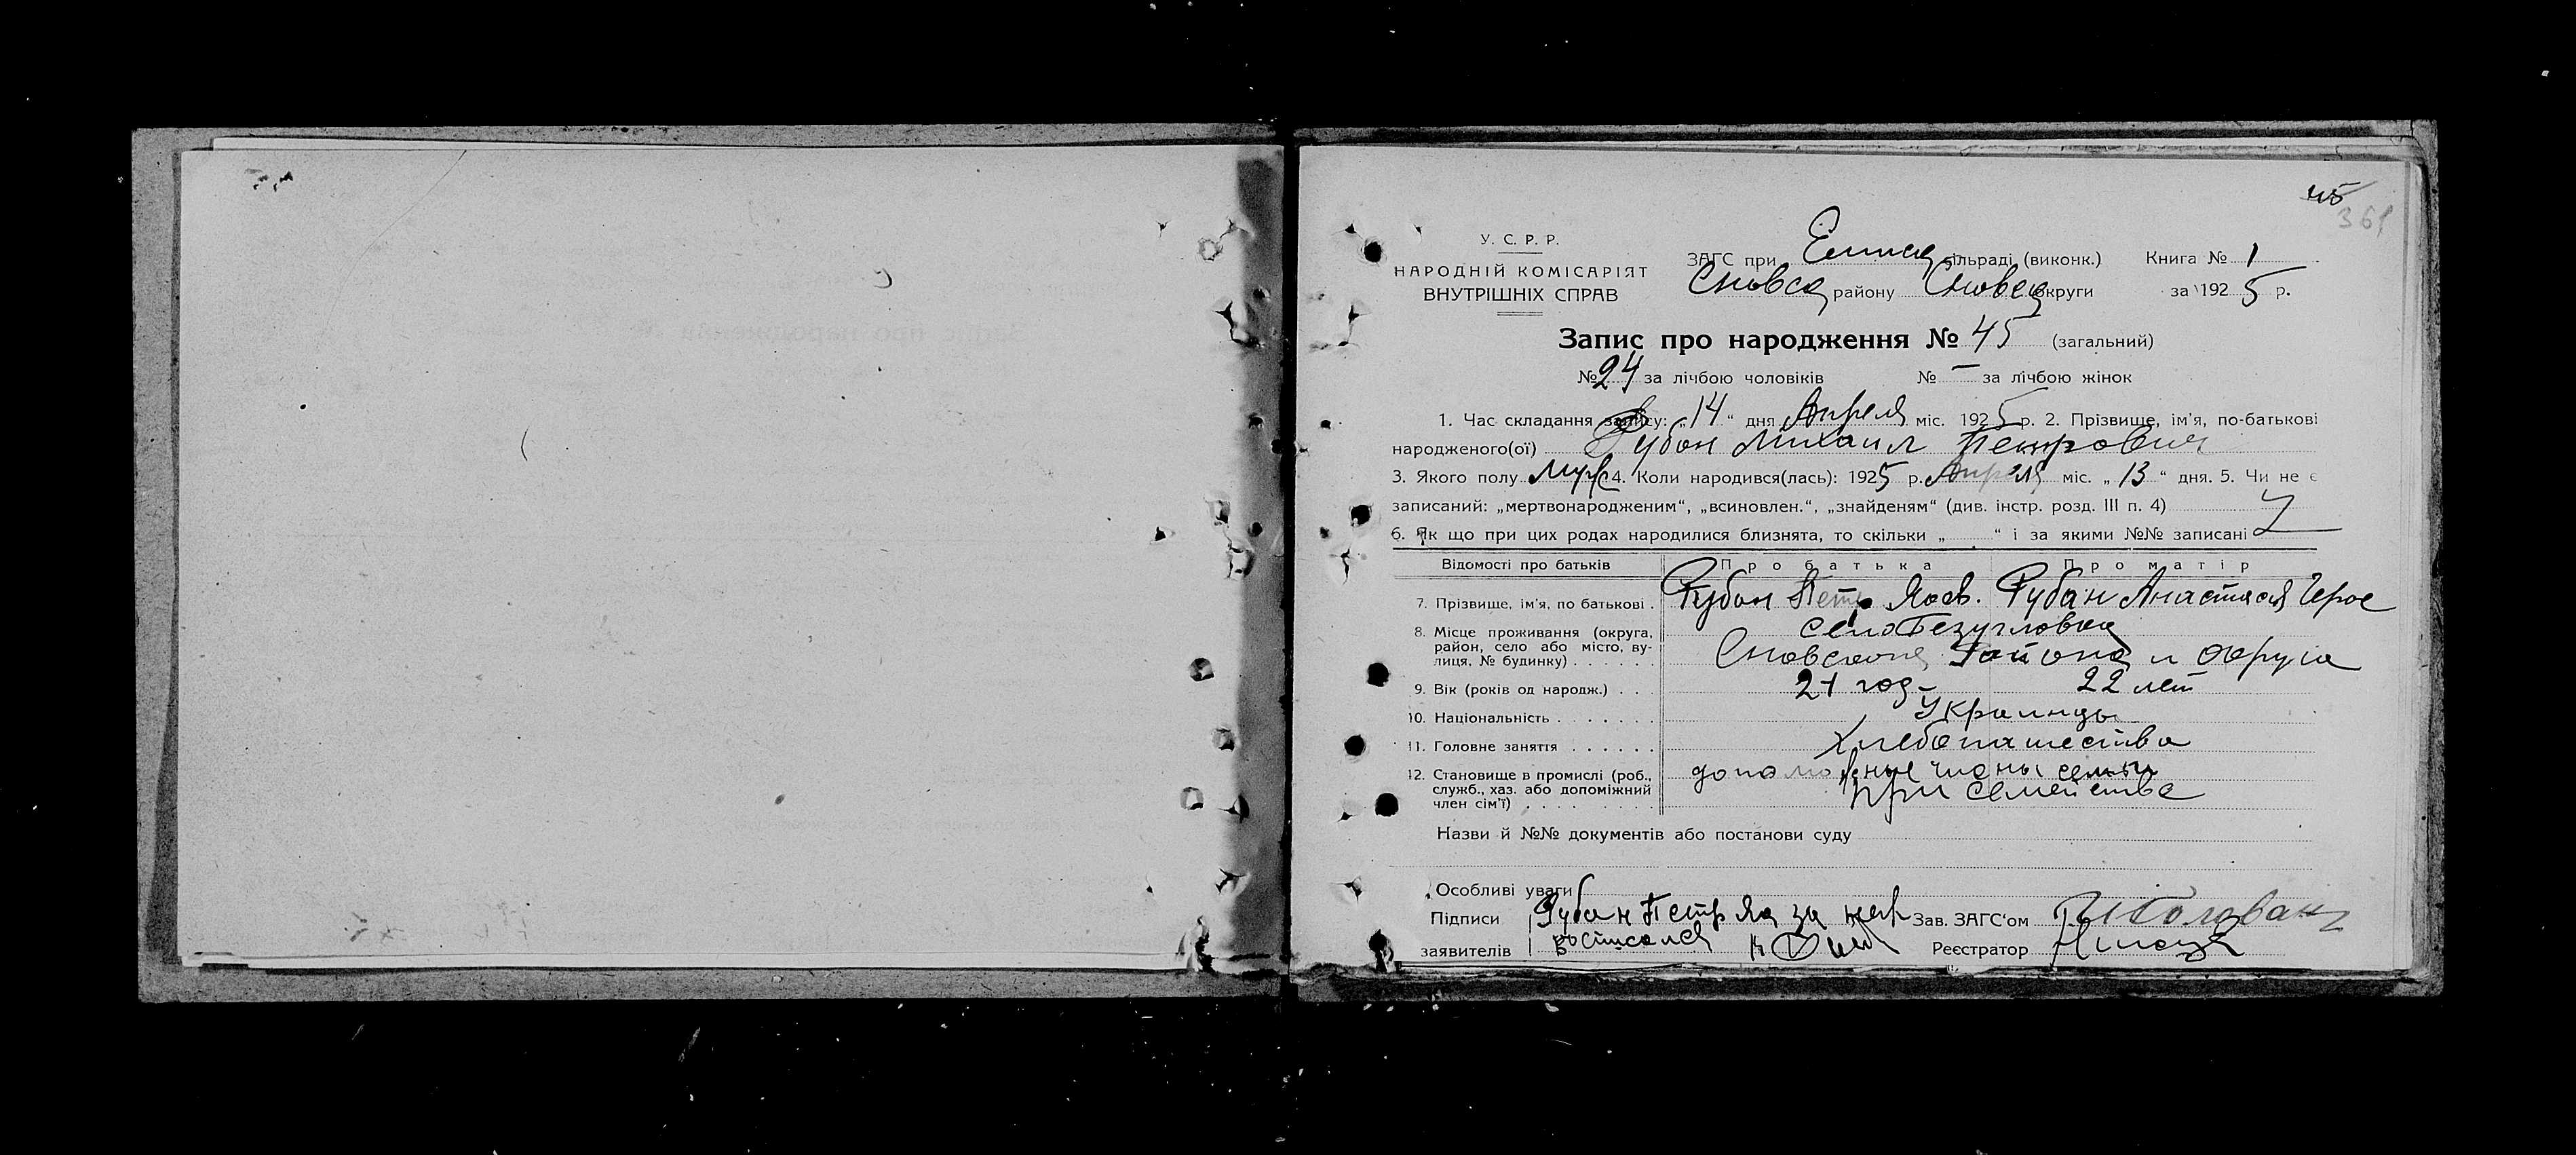 45
361
У. С. Р. Р.
НАРОДНІЙ КОМІСАРІЯТ
ВНУТРІШНІХ СПРАВ
ЗАГС при сільраді (виконк.) Книга № 1
Сновск району Сновск округи за 1925 р.
Запис про народження № 45 (загальний)
№ 24 за лічбою чоловіків № — за лічбою жінок
1. Час складання запису: „14“ дня Апреля міс. 1925 р. 2. Прізвище, ім'я, по-батькові
народженого(ої) Рубан Михаил Петрович
3. Якого полу Муж 4. Коли народився(лась): 1925 р. Апреля міс. „13“ дня. 5. Чи не є
записаний: „мертвонародженим“, „всиновлен.“, „знайденям“ (див. інстр. розд. III п. 4)
6. Як що при цих родах народилися близнята, то скільки „ “ і за якими №№ записані
Відомості про батьків Про батька Про матір
7. Прізвище, ім'я, по батькові . Рубан Петр Яков. Рубан Анастасия
8. Місце проживання (округа, село Безугловка
район, село або місто, ву-
лиця, № будинку) . . . . . . Сновского Района и округа
9. Вік (років од народж.) . . . 21 год 22 лет
10. Національність . . . . . . . Украинцы
11. Головне заняття . . . . . . Хлебопашество
12. Становище в промислі (роб., члены семьи
служб., хаз. або допоміжний при семействе
член сім'ї) . . . . . . . .
Назви й №№ документів або постанови суду
Особливі уваги
Підписи Рубан Петр Як за Зав. ЗАГС'ом
заявителів росписался Реєстратор